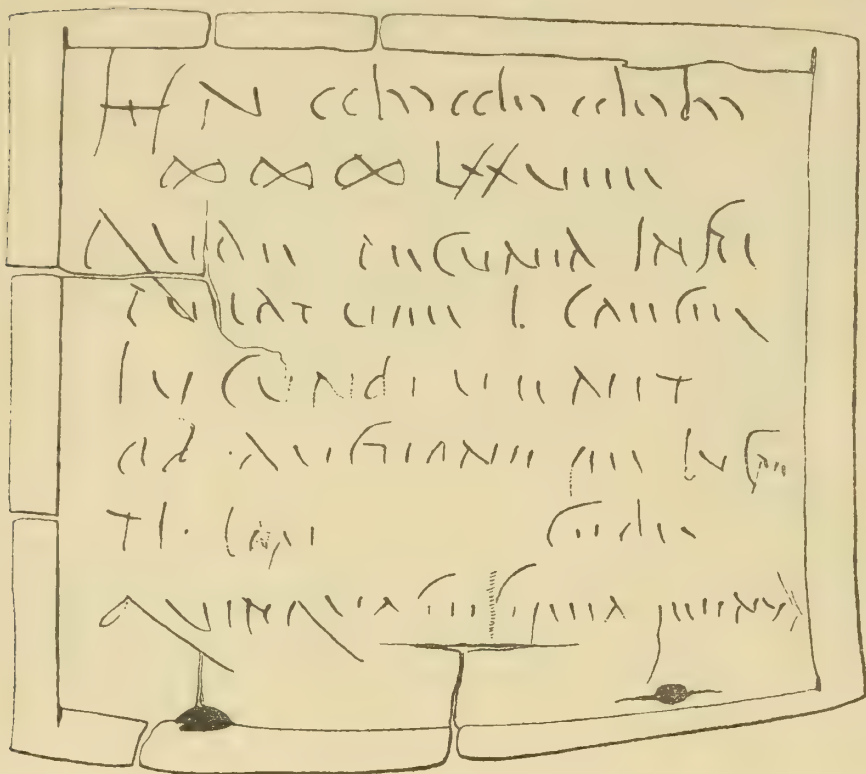 HS N ccIↄↄ ccIↄↄ ccIↄↄ Iↄↄ
∞ ∞ ∞ LXXVIIII
quae pecunia in sti
pulatum L. Caecili
Iucundi venit
ob auctionem M Lucre
ti Leri cede
quinquagesima minu